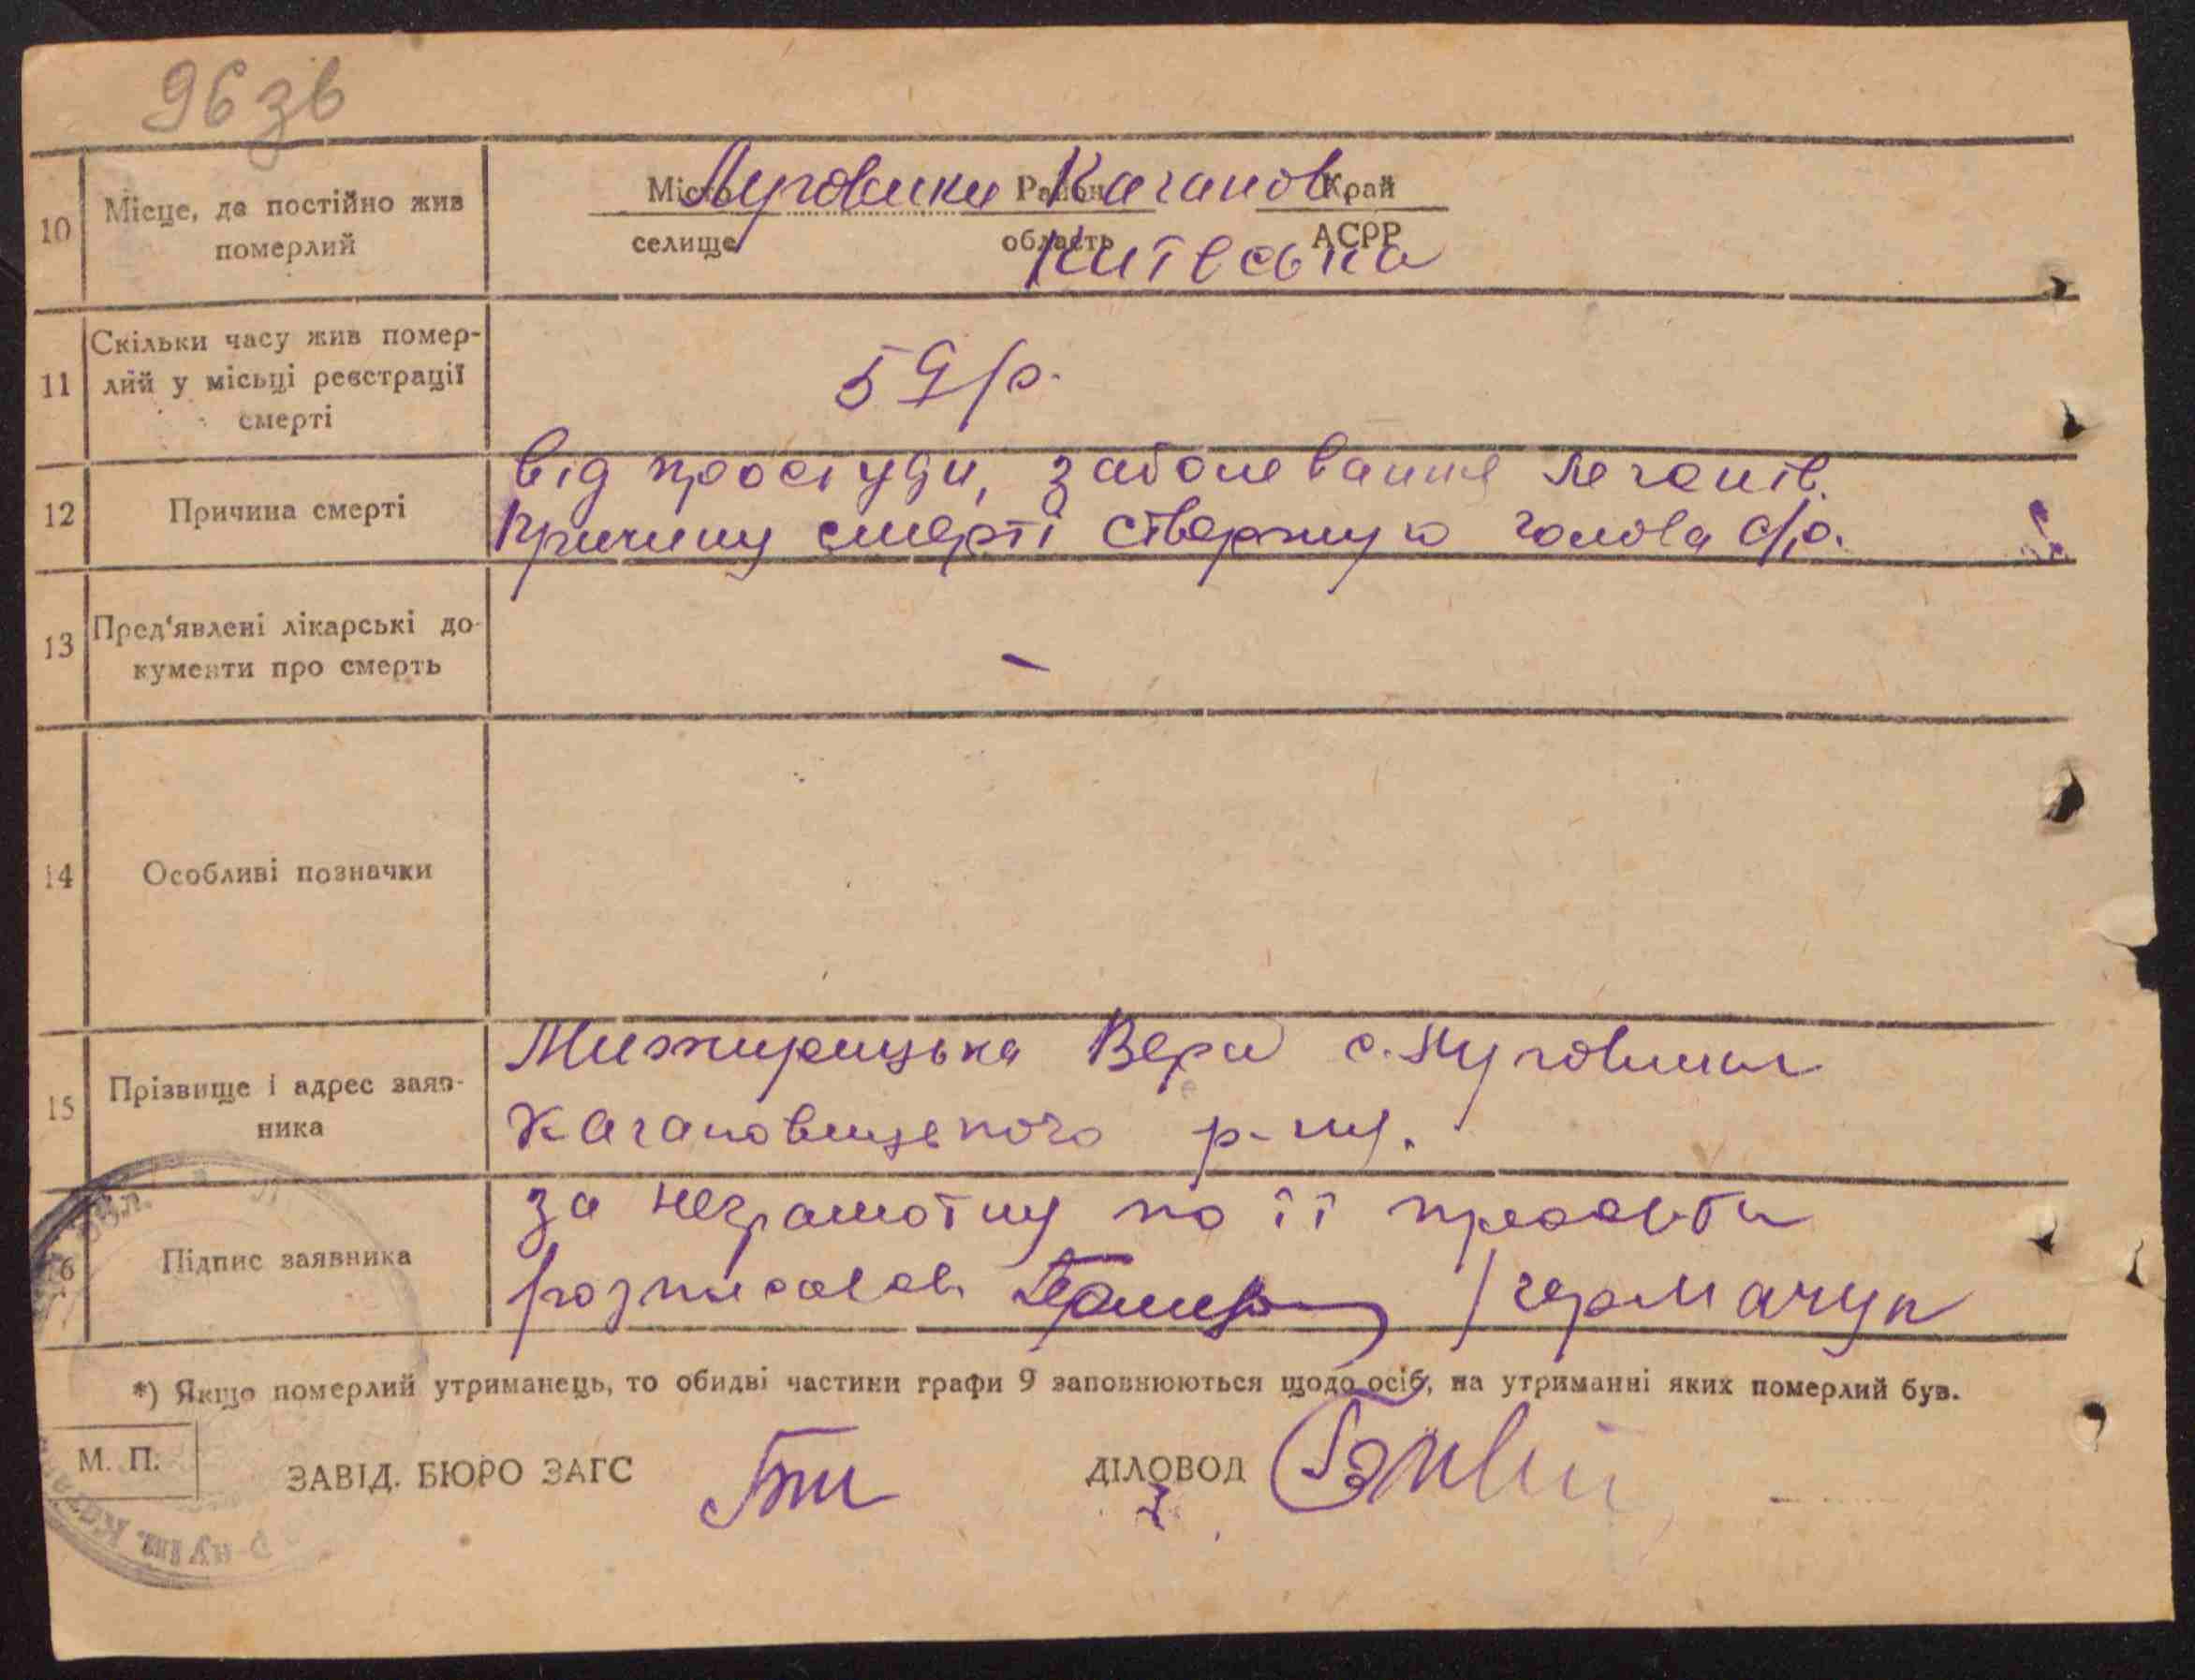 96 зв
10 Місце, де постійно жив померлий
Місто Луговики Район Каганов. Край
селище область Київська АСРР
11 Скільки часу жив помер-
лий у місьці реєстрації
смерті
59 р.
12 Причина смерті
від простуди, заболевание легенів.
Причину смерті ствержую голова с/р.
13 Пред'явлені лікарські до-
кументи про смерть
-
14 Особливі позначки
15 Прізвище і адрес заяв-
ника
Мижирицька Вера с. Луговики
Кагановицького р-ну.
16 Підпис заявника
за неграмотну по її просьби
розписався /Гермачук
*) Якщо померлий утриманець, то обидві частини графи 9 заповнюються щодо осіб, на утриманні яких померлий був.
М. П.
ЗАВІД. БЮРО ЗАГС ДІЛОВОД